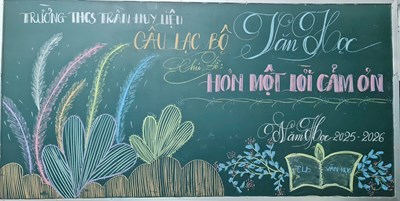 TRƯỜNG THCS TRẦN HUY LIỆU
CÂU LẠC BỘ Văn Học
Chủ Đề:
HƠN MỘT LỜI CẢM ƠN
Năm Học 2025-2026
CLB VĂN HỌC